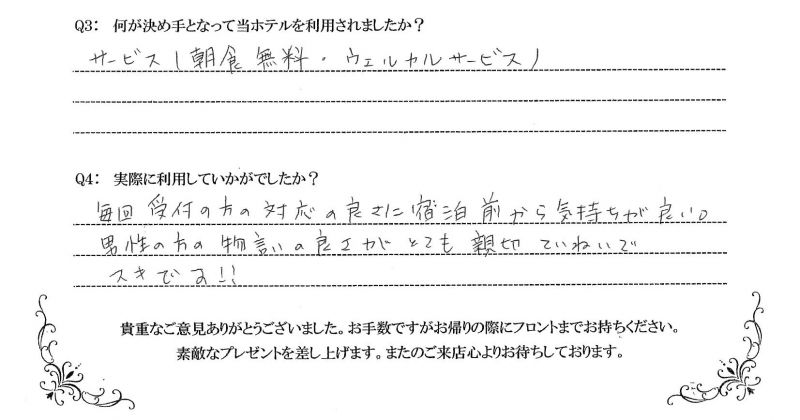 Q3： 何が決め手となって当ホテルを利用されましたか？
サービス（朝食無料・ウェルカルサービス）
Q4： 実際に利用していかがでしたか？
毎回受付の方の対応の良さに宿泊前から気持ちが良い。
男性の方の物言いの良さがとても親切ていねいで
スキです!!
貴重なご意見ありがとうございました。お手数ですがお帰りの際にフロントまでお持ちください。
素敵なプレゼントを差し上げます。またのご来店心よりお待ちしております。